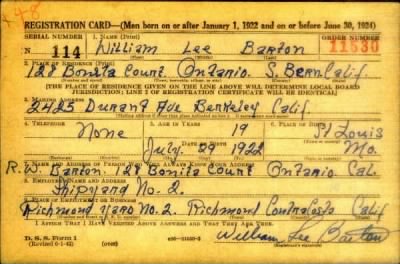 REGISTRATION CARD—(Men born on or after January 1, 1922 and on or before June 30, 1924)
SERIAL NUMBER 1. NAME (Print) ORDER NUMBER
N 114 William Lee Barton 11530
(First) (Middle) (Last)
2. PLACE OF RESIDENCE (Print)
128 Bonita Court Ontario S. Bern Calif
(THE PLACE OF RESIDENCE GIVEN ON THE LINE ABOVE WILL DETERMINE LOCAL BOARD
JURISDICTION; LINE 2 OF REGISTRATION CERTIFICATE WILL BE IDENTICAL)
3. MAILING ADDRESS
2425 Durant Ave Berkeley Calif
4. TELEPHONE 5. AGE IN YEARS 6. PLACE OF BIRTH
None 19 St Louis
DATE OF BIRTH
July 29 1922 Mo.
7. NAME AND ADDRESS OF PERSON WHO WILL ALWAYS KNOW YOUR ADDRESS
R.W. Barton. 128 Bonita Court Ontario Cal.
8. EMPLOYER'S NAME AND ADDRESS
Shipyard No. 2.
9. PLACE OF EMPLOYMENT OR BUSINESS
Richmond Yard No. 2. Richmond Contra Costa Calif
I AFFIRM THAT I HAVE VERIFIED ABOVE ANSWERS AND THAT THEY ARE TRUE.
D. S. S. Form 1
(Revised 6-1-42)
William Lee Barton